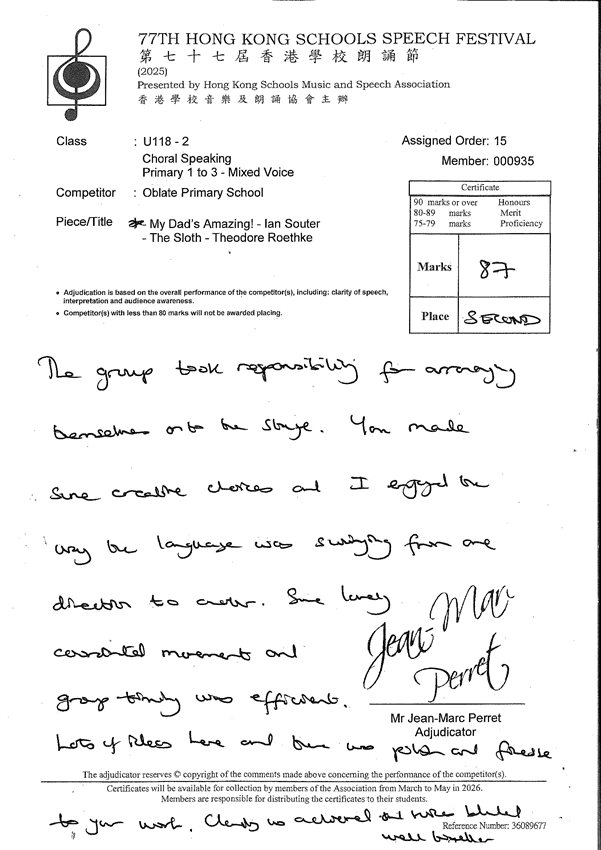 77TH HONG KONG SCHOOLS SPEECH FESTIVAL
第七十七屆香港學校朗誦節
(2025)
Presented by Hong Kong Schools Music and Speech Association
香港學校音樂及朗誦協會主辦
Class : U118 - 2
Choral Speaking
Primary 1 to 3 - Mixed Voice
Assigned Order: 15
Member: 000935
Competitor : Oblate Primary School
Piece/Title : * My Dad's Amazing! - Ian Souter
- The Sloth - Theodore Roethke
Certificate
90 marks or over Honours
80-89 marks Merit
75-79 marks Proficiency
Marks 87
Place SECOND
• Adjudication is based on the overall performance of the competitor(s), including: clarity of speech, interpretation and audience awareness.
• Competitor(s) with less than 80 marks will not be awarded placing.
The group took responsibility for arranging
themselves onto the stage. You made
some creative choices and I enjoyed the
way the language was swinging from one
direction to another. Some lovely
coordinated movement and
group timing was efficient.
Jean-Marc Perret
Mr Jean-Marc Perret
Adjudicator
Lots of ideas here and there was polish and finesse
The adjudicator reserves © copyright of the comments made above concerning the performance of the competitor(s).
Certificates will be available for collection by members of the Association from March to May in 2026.
Members are responsible for distributing the certificates to their students.
to your work. Clarity was achieved and voices blended
well together
Reference Number: 36089677